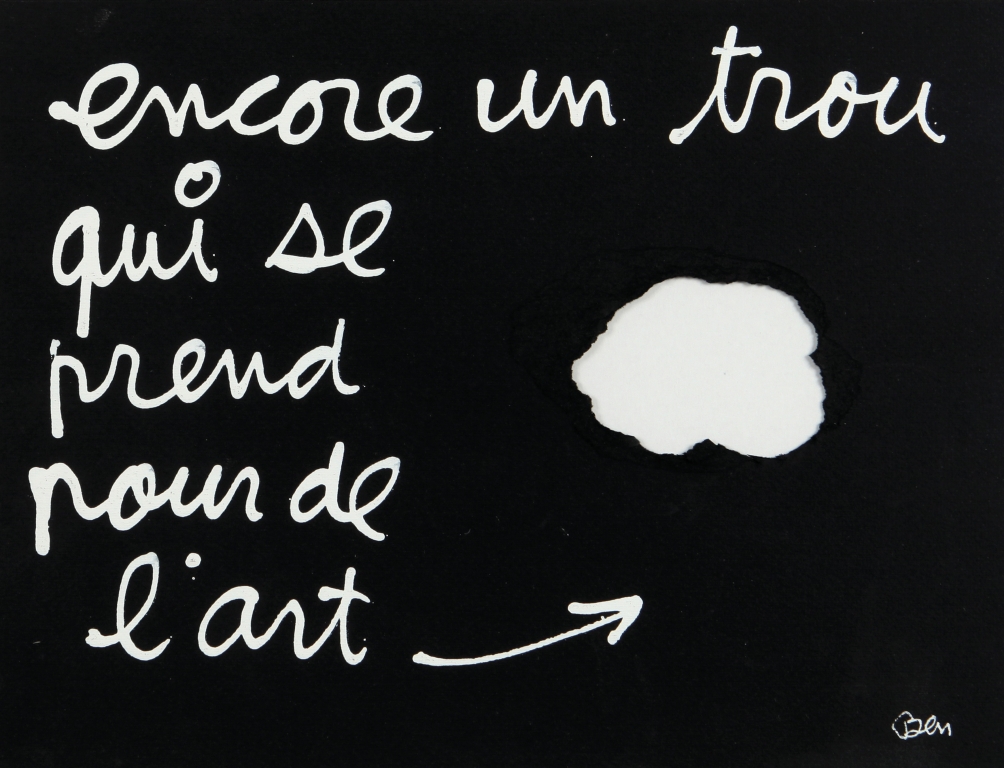 encore un trou
qui se
prend
pour de
l'art
Ben